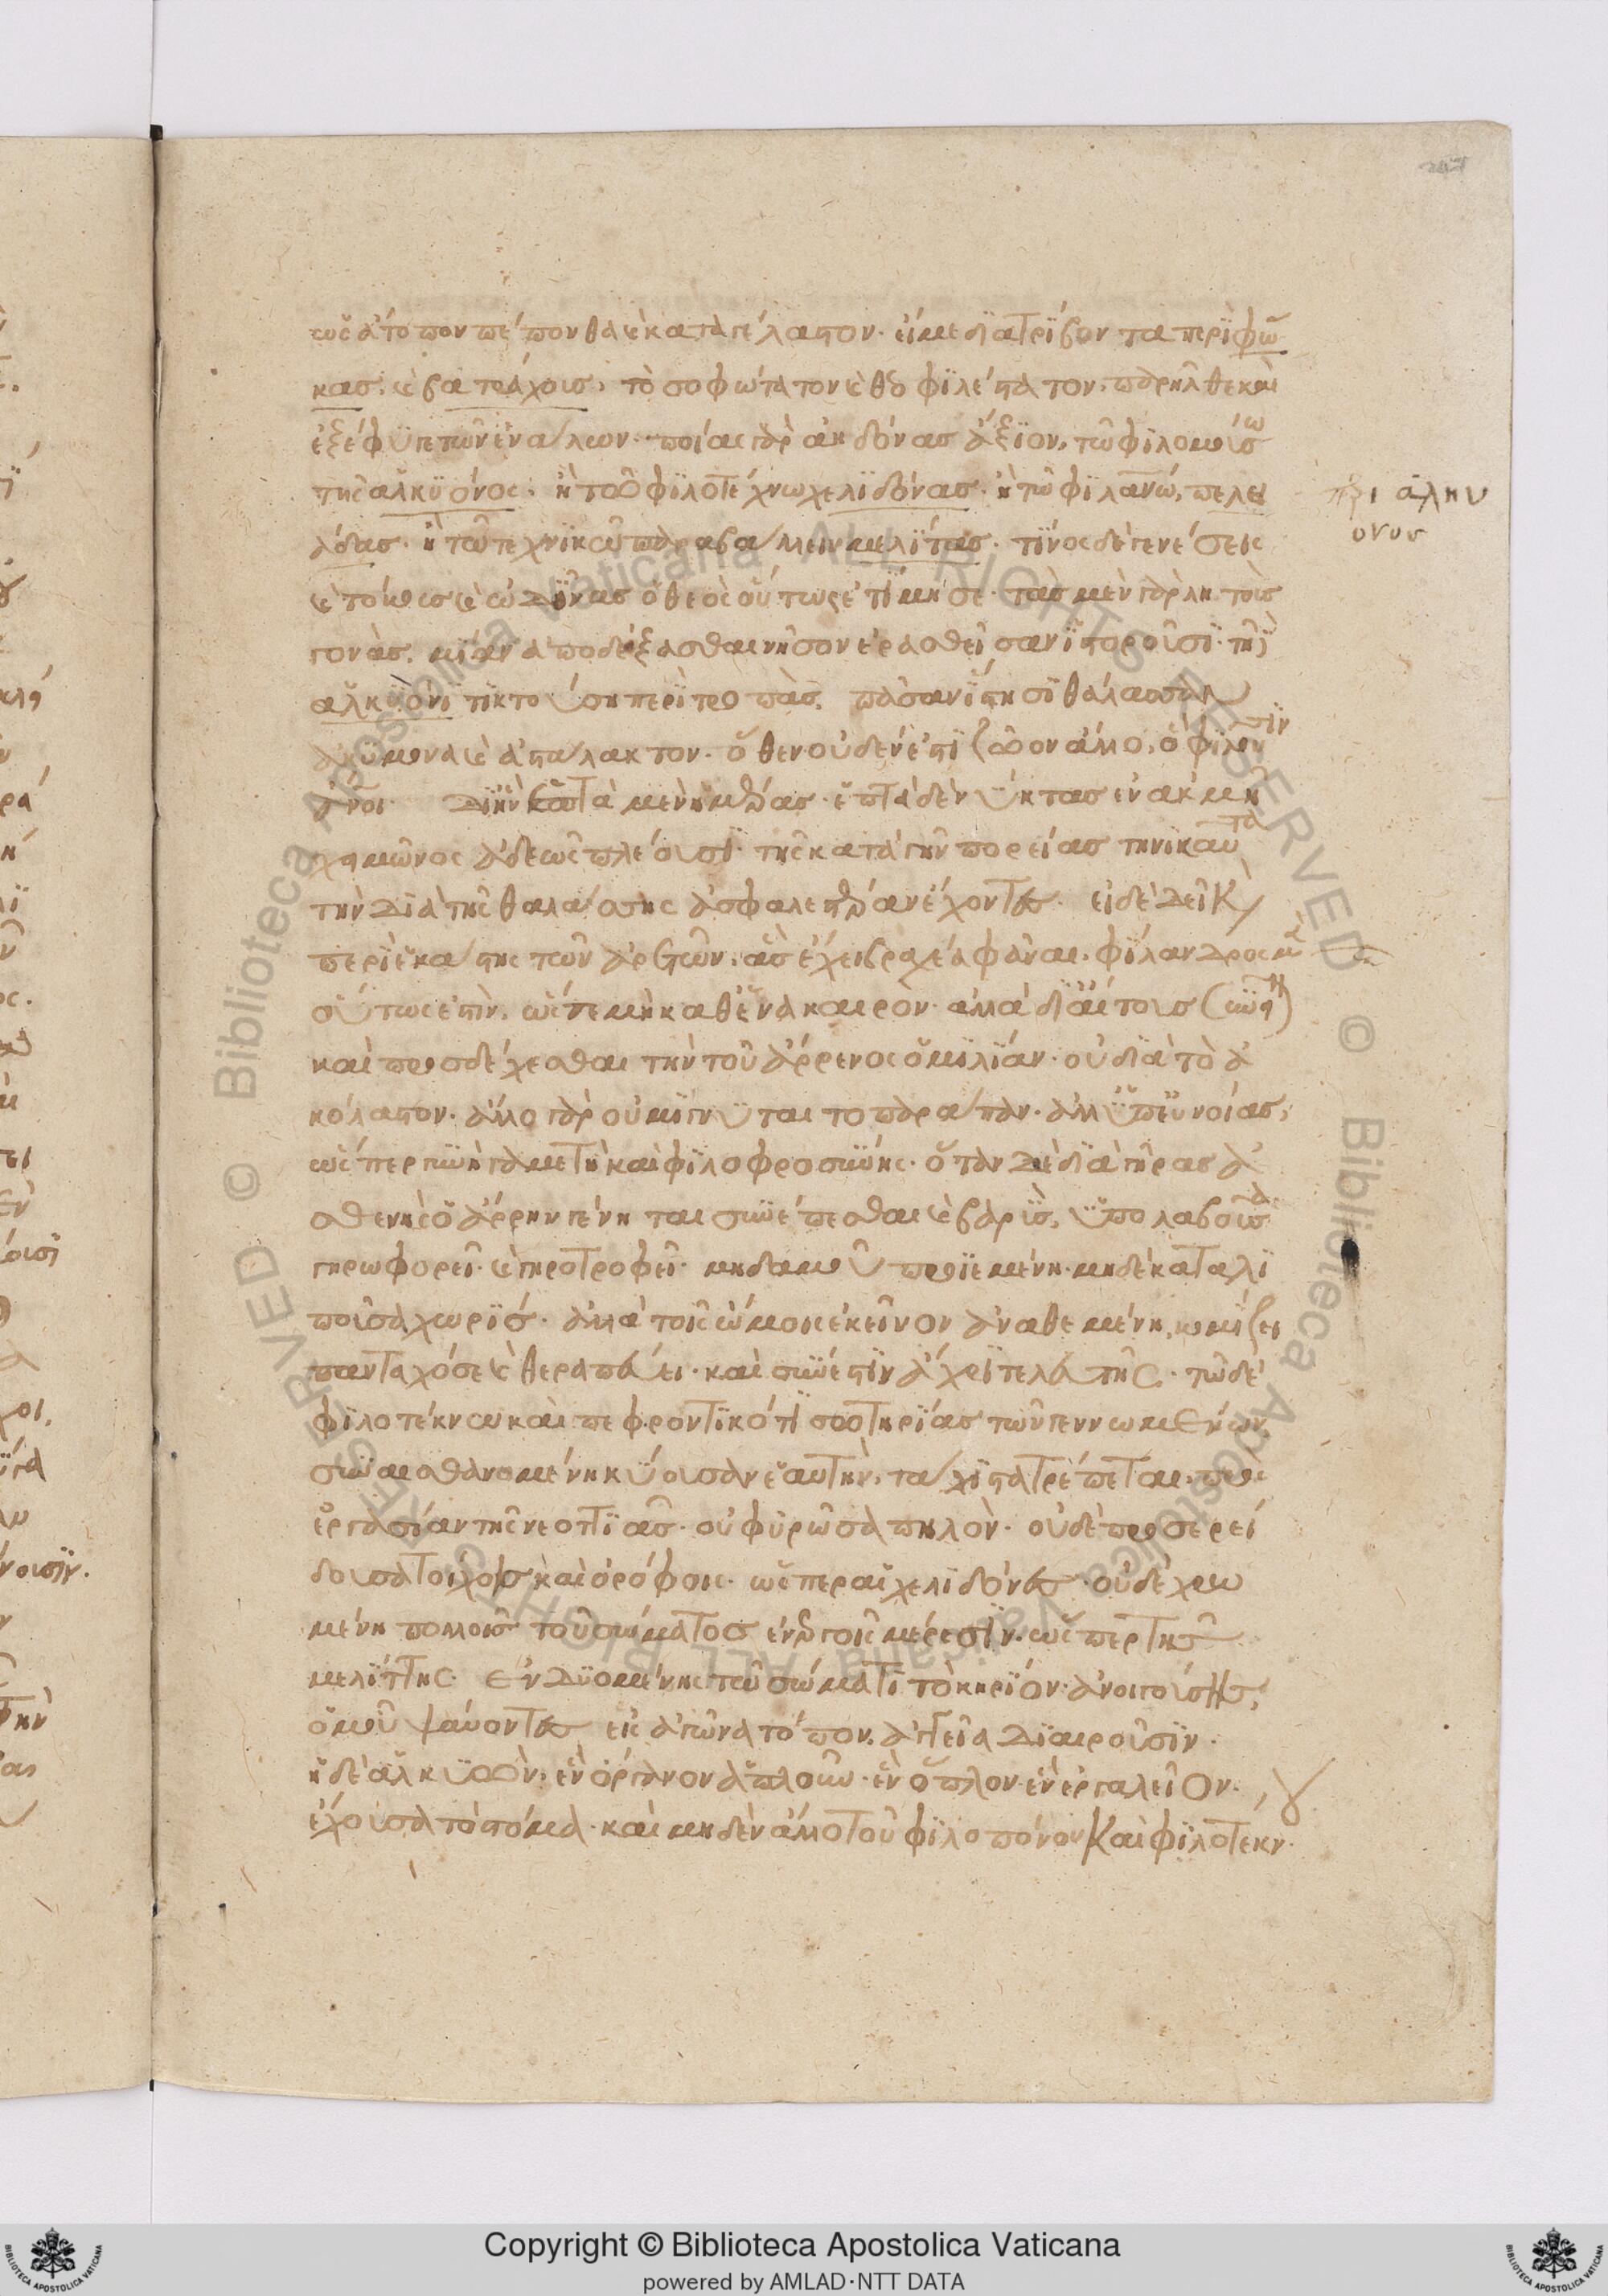 ὡς ἄτοπον πέπονθα καὶ καταγέλαστον. εἴ με διατρῖβον τα περὶ φώ
κας. καὶ βατράχοις. τὸ σοφώτατον καὶ θεοφιλέστατον. παρῆλθε καὶ
ἐξέφυγε τῶν ἐνάλων. ποίας γὰρ ἀηδόνας ἄξιον. τῶ φιλομούσω
τῆς ἀλκυόνος. ἢ τοῦ φιλοτέχνω χελιδόνας. ἢ τῶ φιλάνω. πελει
άδας. ἢ τῶ τεχνικῶ παραβάλλειν μελίττας. τίνος δὲ γενέσεις
καὶ τόκους καὶ ὠδῖνας ὁ θεὸς οὕτως ἐτίμησε. τὰς μὲν γὰρ λητοῖς
γονὰς. μίαν ἀποδέξασθαι νῆσον ἑρασθεῖσαν ἱστοροῦσι. τῆι
ἀλκυόνι τικτούση περὶ τροπὰς. πᾶσαν ἵστησι θάλασσαν
ἀκύμονα καὶ ἀσάλακτον. ὅθεν οὐδέν ἐστι ζῶον ἄλλο. ὃ φιλοῦσιν
ἄνοι. δι' ἣν ἑπτὰ μὲν ἡμέρας. ἑπτὰ δὲ νύκτας ἐν ἀκμῆ
χειμῶνος ἀδεῶς πλέουσι. τῆς κατὰ γῆν πορείας τηνικαῦτα
τὴν διὰ τῆς θαλάσσης ἀσφαλεστέραν ἔχοντες. εἰ δὲ δεῖ κ
περὶ ἑκάστης τῶν ἀρετῶν. ἃς ἔχει βραχέα φάναι. φίλανδρος μὲν
οὕτως ἐστὶν. ὥστε μὴ καθ' ἕνα καιρὸν. ἀλλὰ δι' ἔτους συνεῖ
καὶ προσδέχεσθαι τὴν τοῦ ἄρρενος ὁμιλίαν. οὐ διὰ τὸ ἀ
κόλαστον. ἄλλο γὰρ οὐ μίγνυται το παράπαν. ἀλλ' ὑπ' εὐνοίας,
ὥσπερ γυνὴ γαμετὴ καὶ φιλοφροσύνης. ὅταν δὲ διὰ γῆρας ἀ
σθενὴς ὁ ἄρρην γένηται συνέπεσθαι καὶ βαρὺς, ὑπολαβοῦσα
γηρωφορεῖ. καὶ γηροτροφεῖ. μηδαμοῦ προϊεμένη. μηδὲ καταλι
ποῦσα χωρίς. ἀλλὰ τοῖς ὤμοις ἐκεῖνον ἀναθεμένη, κομίζει
πανταχόσε καὶ θεραπεύει. καὶ σύνεστιν ἄχρι τελευτῆς. τῶ δὲ
φιλοτέκνω καὶ πεφροντικότι σωτηρίας τῶν γεννωμένων,
συναισθανομένη κύουσαν ἑαυτὴν, τάχιστα τρέπεται. πρὸς
ἐργασίαν τῆς νεοττιᾶς. οὐ φυρῶσα πηλὸν. οὐδὲ προσερεί
δουσα τοίχοις καὶ ὀρόφοις. ὥσπερ αἱ χελιδόνες. οὐδὲ χρω
μένη πολλοῖς τοῦ σώματος ἐνεργοῖς μέρεσιν. ὥσπερ τῆς
μελίττης. ἐνδυομένης τοῦ σώματι τὸ κηρίον. ἀνοιγούσης,
ὁμοῦ ψαύοντες εἰς ἀγῶνα τόπον. ἀγγεῖα διαιροῦσιν.
ἡ δὲ ἀλκυὼν, ἓν ὄργανον ἁπλοῦν. ἓν ὅπλον. ἓν ἐργαλεῖον.
ἔχουσα τὸ στόμα. καὶ μηδὲν ἄλλο τοῦ φιλοπόνου καὶ φιλοτέκν.
πρι αλκυ
ονος
Copyright © Biblioteca Apostolica Vaticana
powered by AMLAD·NTT DATA